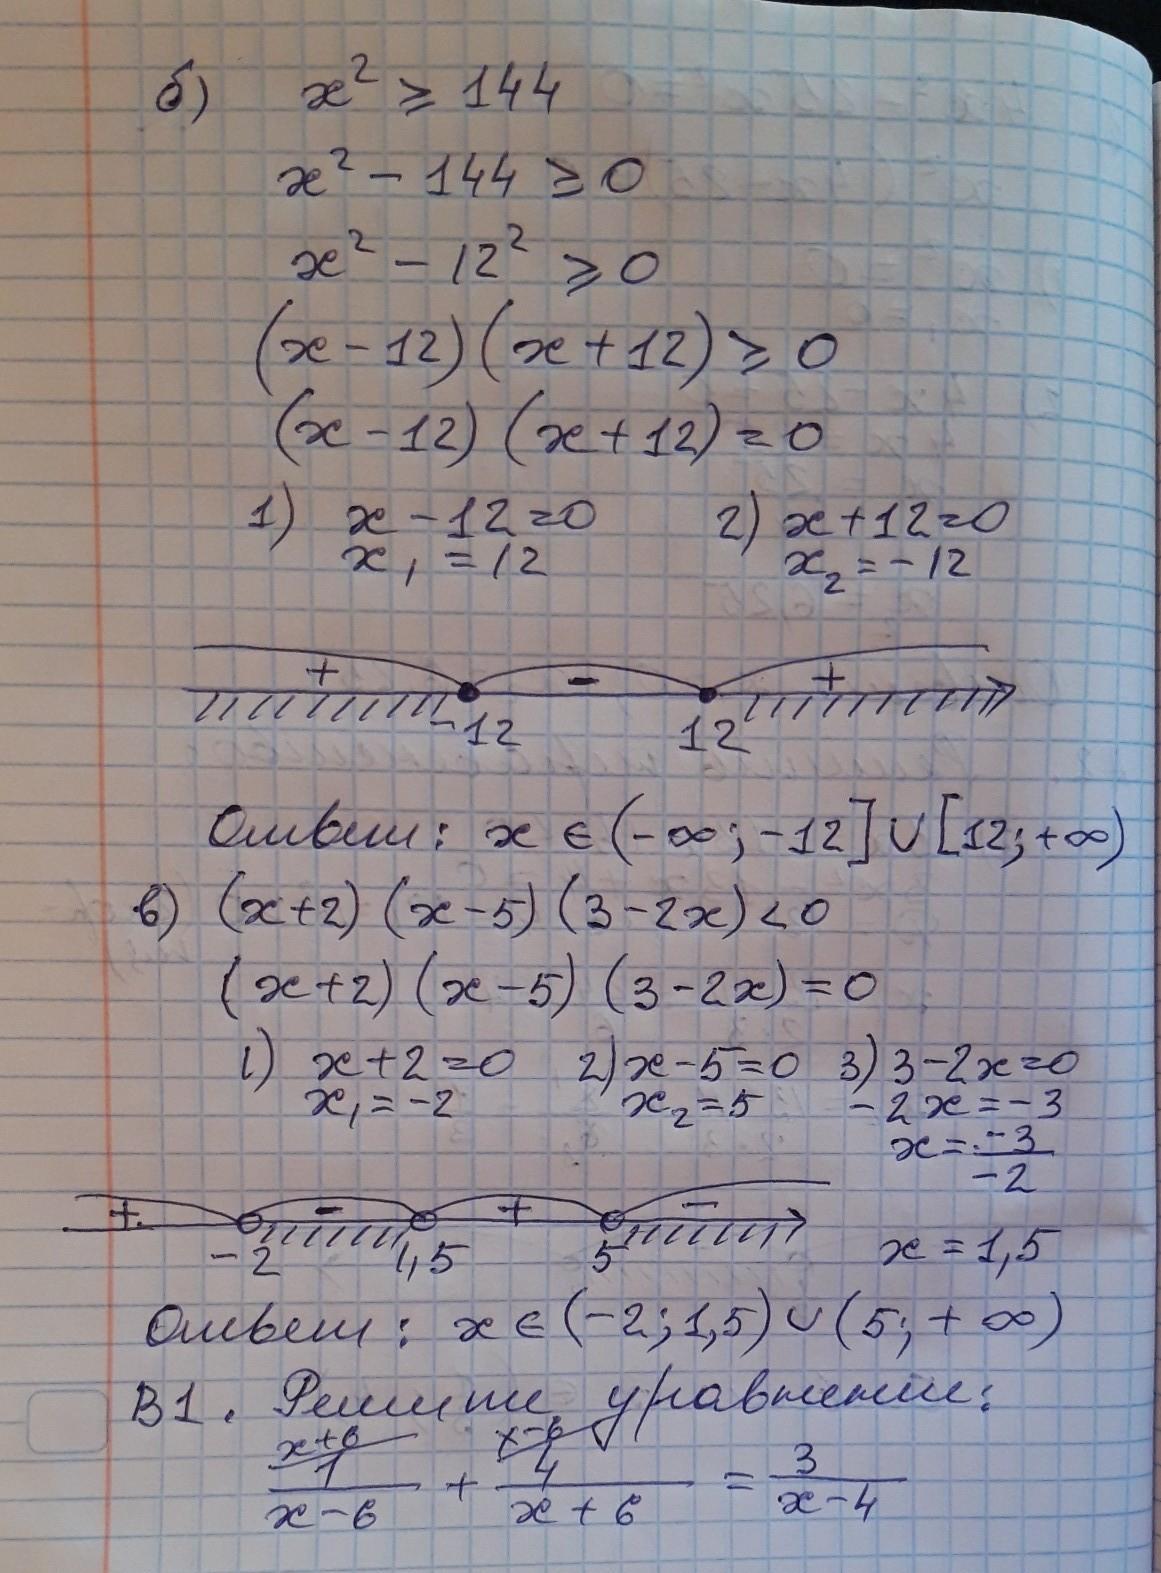 б) x² ≥ 144
x² - 144 ≥ 0
x² - 12² ≥ 0
(x - 12) (x + 12) ≥ 0
(x - 12) (x + 12) = 0
1) x - 12 = 0 2) x + 12 = 0
x₁ = 12 x₂ = -12
+ - +
-12 12
Ответ: x ∈ (-∞; -12] ∪ [12; +∞)
в) (x+2) (x-5) (3-2x) < 0
(x+2) (x-5) (3-2x) = 0
1) x+2=0 2) x-5=0 3) 3-2x=0
x₁ = -2 x₂ = 5 -2x = -3
x = -3/-2
+ - + -
-2 1,5 5 x = 1,5
Ответ: x ∈ (-2; 1,5) ∪ (5; +∞)
В1. Решите уравнение:
x+6 x-6
1/(x-6) + 4/(x+6) = 3/(x-4)